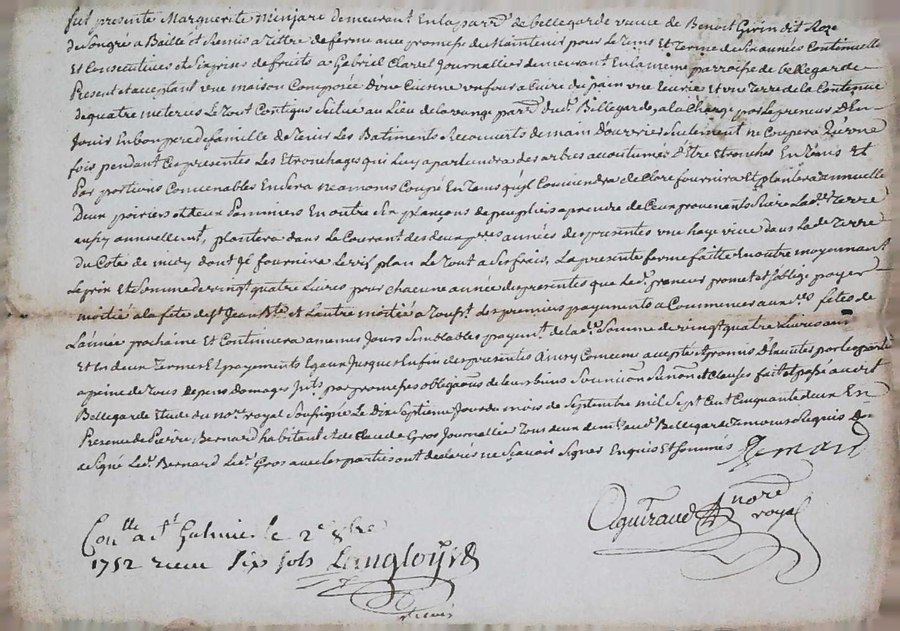 fut presente Marguerite Minjard demeurant En la parr.e de bellegarde veuve de Benoit Girin dit Roze
de son gré a Baillé et Remis a tittre de ferme avec promesse de Maintenir pour le tems Et terme de six années Continuelle
Et Consecutives et six prises de fruits a Gabriel Clarel Journallier demeurant En la meme parroisse de bellegarde
Present et acceptant une maison Composée d'une Cuisine un four a Cuire du pain une Ecurie et une terre de la Contenue
de quatre meterées Le tout Contigus scitué au Lieu de la vange parr.e dud. Bellegarde, a la Charge par Le preneur D'En
Jouir En bon pere de famille de tenir Les Batiments Recouverts de main d'ouvrier seulement ne Coupera qu'une
fois pendant Ces presentes Les Etronchages qui luy apartiendra des arbres accoutumés d'Etre etronchés En tems Et
Par portions Convenables En sera neamoins Coupé En tems qu'il Conviendra de Clore fournira Et plantera annuelle
Deux poiriers et deux Pommiers En outre six plançons de peupliers a prendre de Ceux provenants sur lad. terre
aussy annuellement, plantera dans le Courant des deux p.res années des presentes une haye vive dans lad. terre
du Coté de midy dont il fournira le vif plan le tout a ses frais, La presente ferme faitte En outre moyennant
Le prix Et somme de vingt quatre Livres pour chacune année des presentes que led. preneur promet et s'oblige payer
moitié a la fete de st Jean Bte et L'autre moitié a Touss.t des premiers payements a Commencer aux d.es fêtes de
L'année prochaine Et Continuera a memes Jours semblables payem.t de lad. somme de vingt quatre Livres an
Et En deux termes Et payements Egaux Jusques En fin des presentes Ainsy Convenu accepté et promis D'Executer par les parties
a peine de tous depens domages Int.s par promesses obligaõns de leurs biens soumission Renonõn et Clauses fait et passé aud.
Bellegarde Etude du no.re royal soussigné Le dix septieme Jour du mois de septembre mil sept Cent Cinquante deux En
Presence de Pierre Bernard habitant et de Claude Gros Journallier tous deux dem.t aud. Bellegarde temoins Requis
a signé Led. Bernard Led. Gros avec les parties ont declarés ne sçavoir signer Enquis Et sommés
Bernard
Aguiraud no.re
royal
Con.lle a st Galmier le 2e 8bre
1752 receu six sols Langloÿs